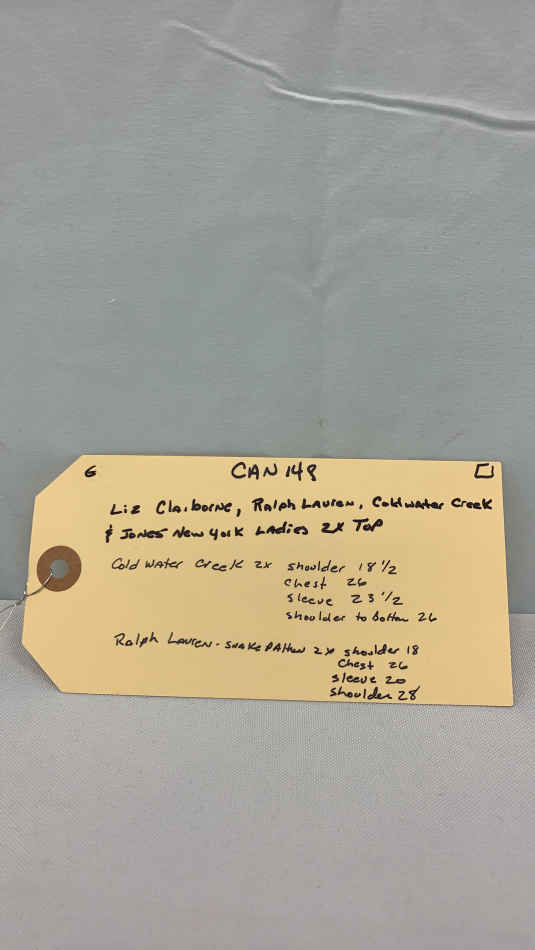 6 CAN 148
Liz Claiborne, Ralph Lauren, Coldwater Creek
& Jones New York Ladies 2X Top
Cold Water Creek 2x shoulder 18 1/2
chest 26
sleeve 23 1/2
shoulder to bottom 26
Ralph Lauren - snake pattern 2x shoulder 18
Chest 26
sleeve 20
shoulder 28